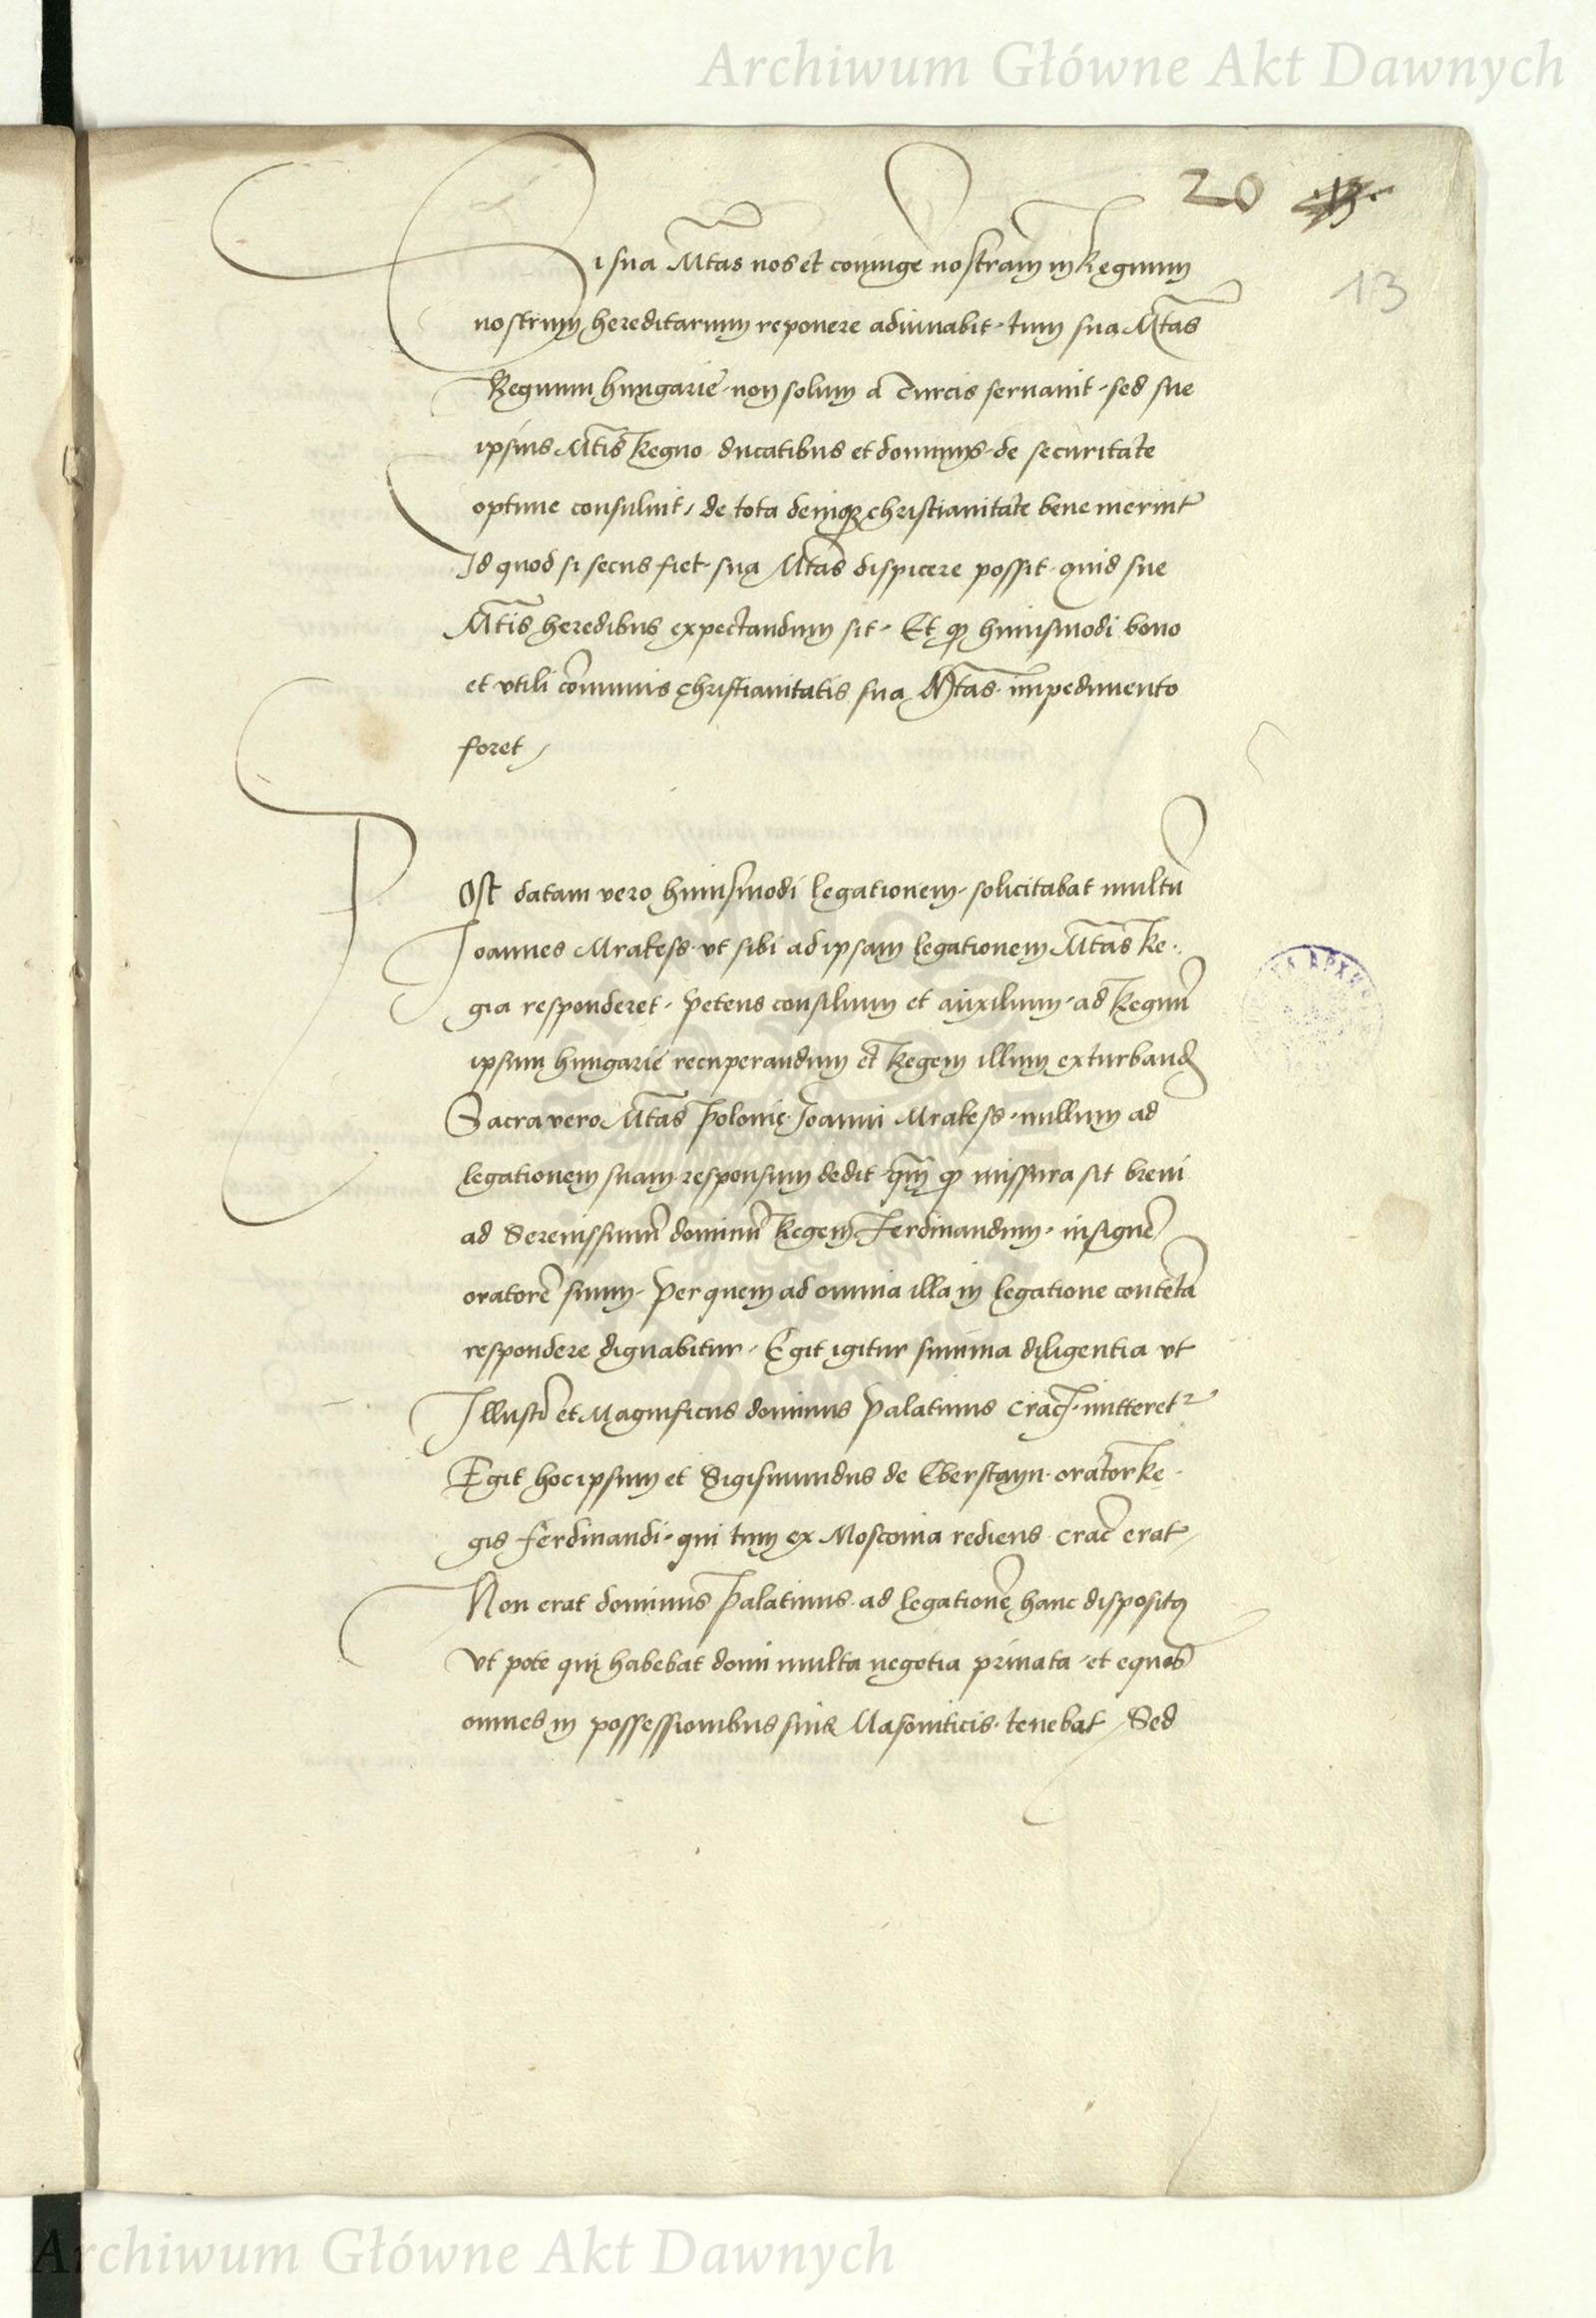 Archiwum Główne Akt Dawnych
20
13
Si sua Mtas nos et coniuge nostram in Regnum
nostrum hereditarium reponere adiuuabit, tum sua Mtas
Regnum hungarie, non solum a Turcis seruauit, sed sue
ipsius Mtis Regno ducatibus et dominijs de securitate
optime consuluit, de tota deniqȝ christianitate bene meruit
Id quod si secus fiet, sua Mtas dispicere possit, quid sue
Mtis heredibus expectandum sit, Et qȝ huiusmodi bono
et vtili cōmunis christianitatis sua Mtas impedimento
foret,
Post datam vero huiusmodi legationem, solicitabat multū
Joannes Mrakess vt sibi ad ipsam legationem Mtas Re-
gia responderet, petens consilium et auxilium, ad Regnū
ipsum hungarie recuperandum et Regem illum exturband
Sacra vero Mtas Polonię Joanni Mrakess, nullum ad
legationem suam responsum dedit, qm̄ qȝ missura sit breui
ad Serenissimū dominū Regem Ferdinandum, insignē
oratorē suum, per quem ad omnia illa in legatione contēta
respondere dignabitur, Egit igitur summa diligentia vt
Illustris et Magnificus dominus Palatinus Crac. mitteret
Egit hoc ipsum et Sigismundus de Eberstayn orator Re-
gis Ferdinandi, qui tum ex Moscouia rediens Crac erat,
Non erat dominus Palatinus ad legationē hanc dispositus
vt pote qui habebat domi multa negotia priuata, et equos
omnes in possessionibus suis Masouiticis tenebat, Sed
Archiwum Główne Akt Dawnych